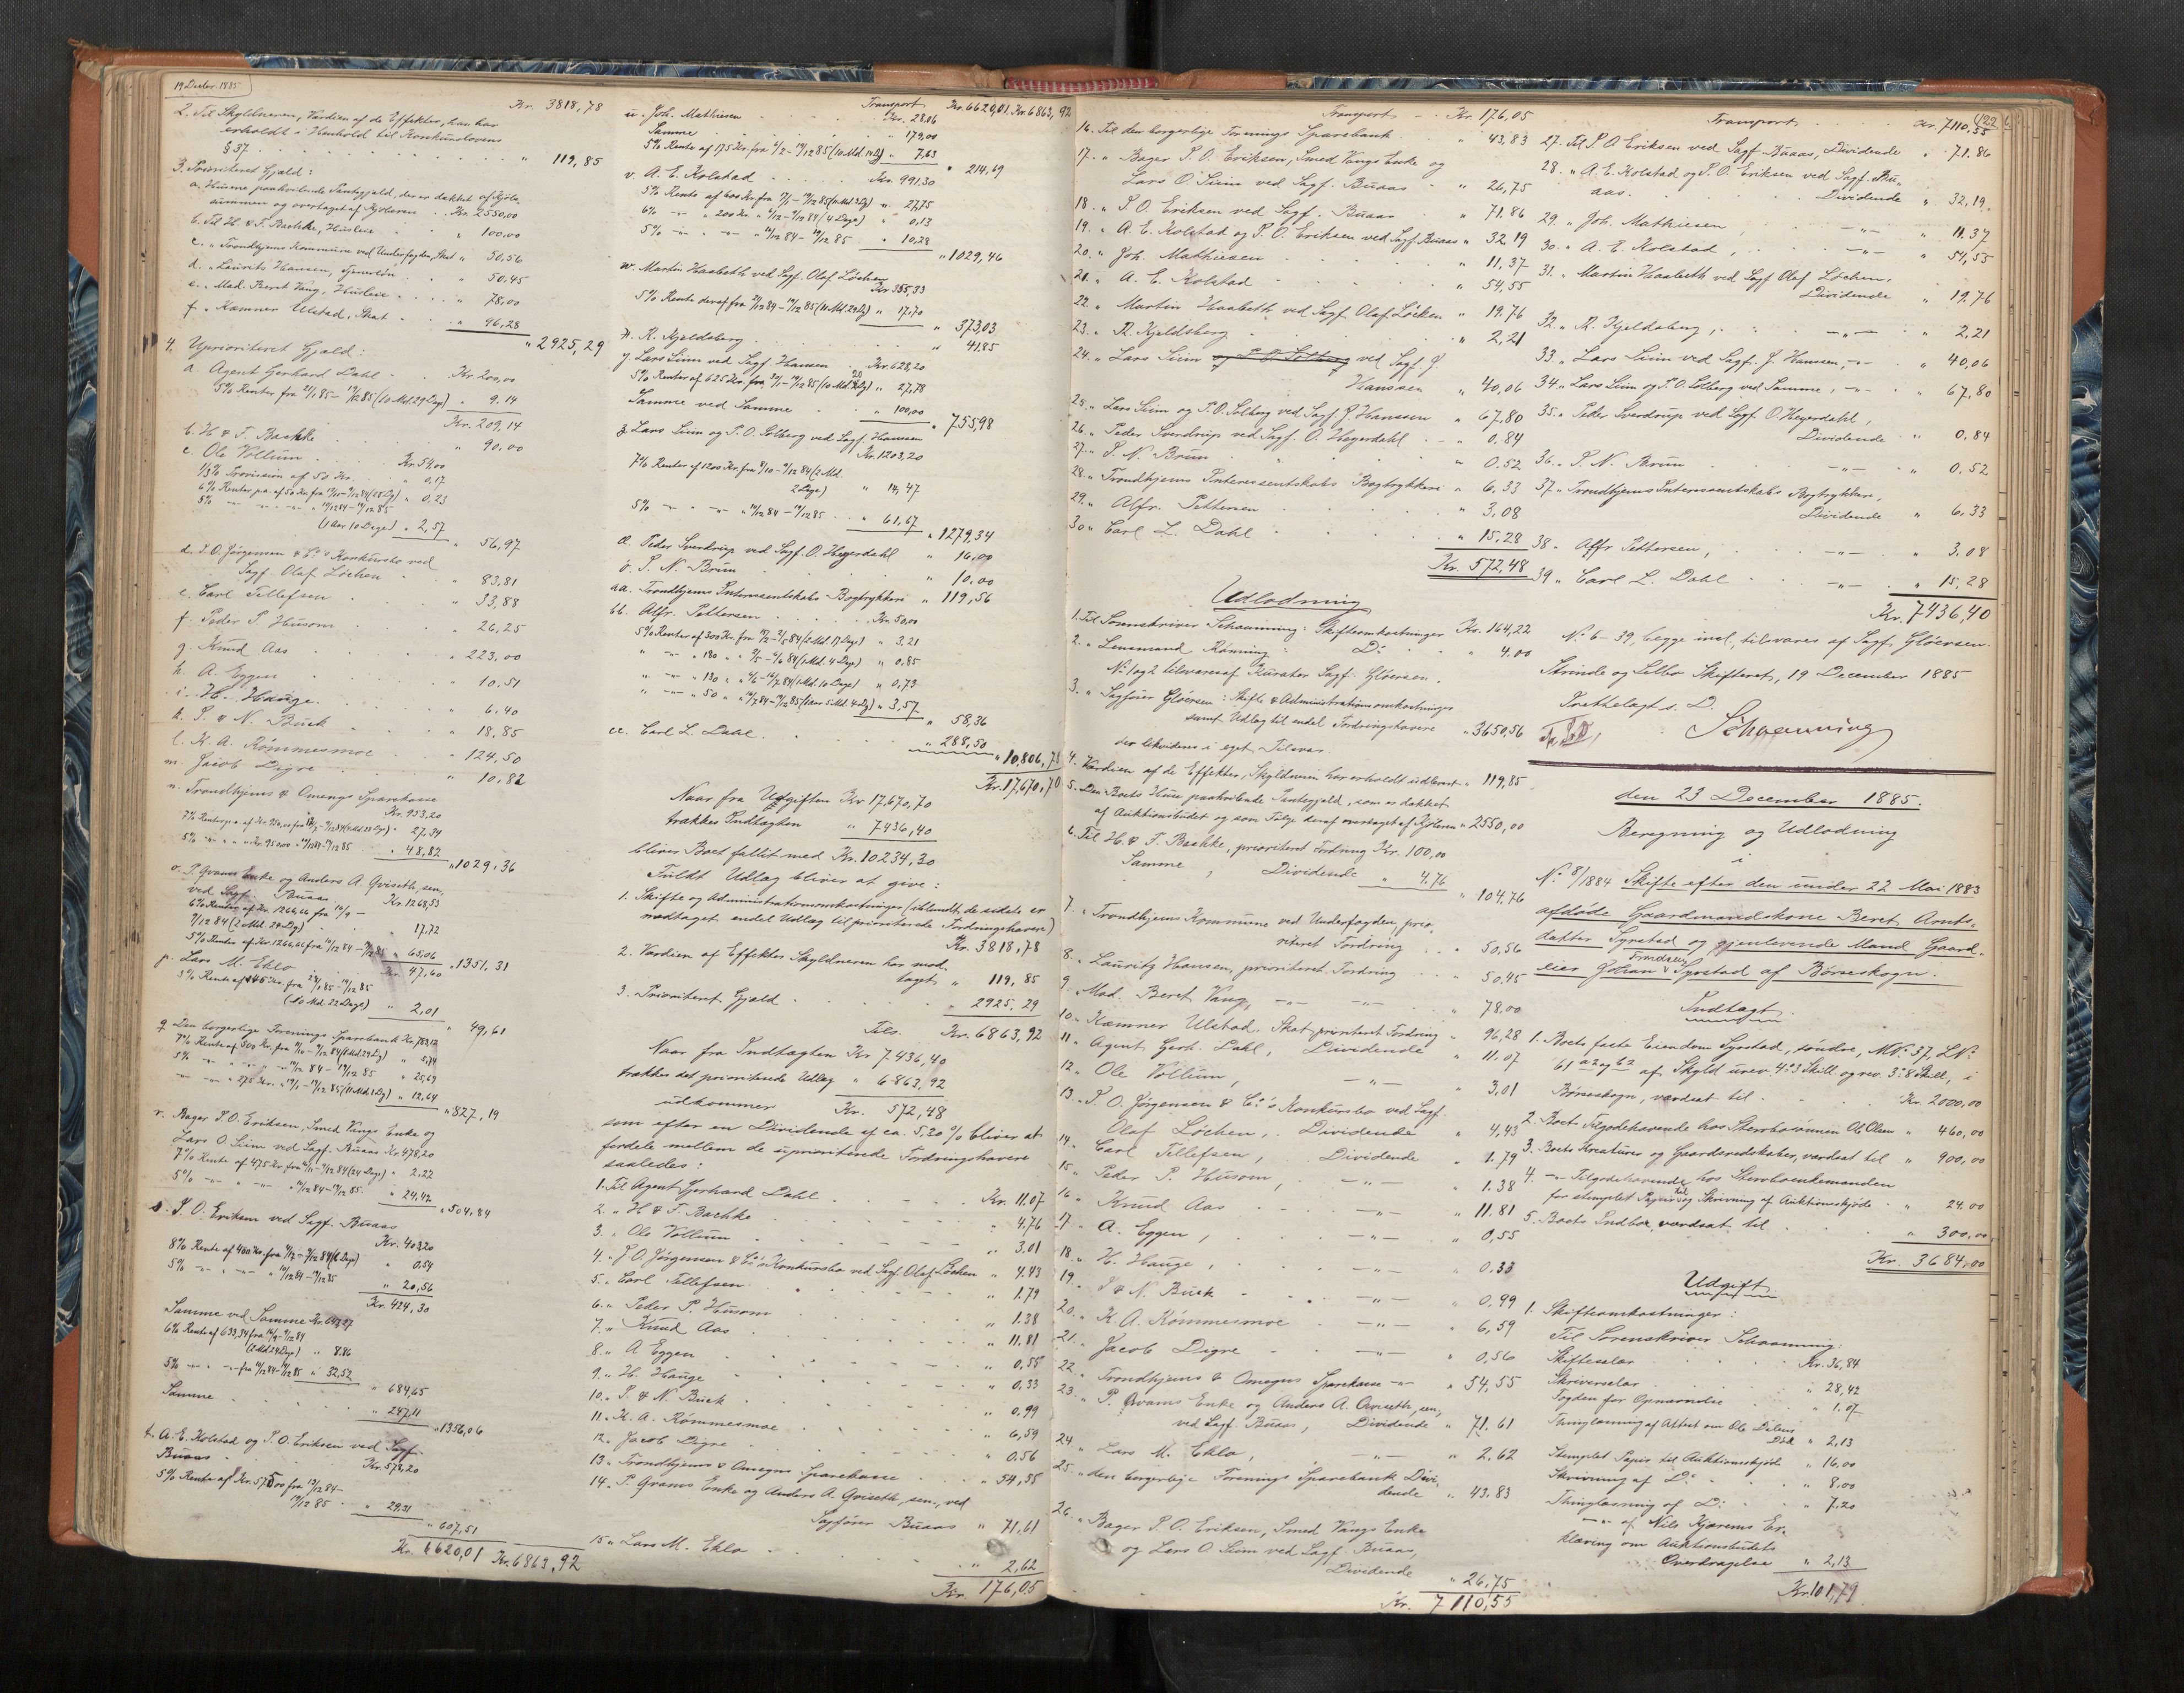 19 Decbr. 1885.
Kr. 3818,78
2. Til Skyldneren, Værdien af de Effekter, han har
erholdt i Henhold til Konkurslovens
§ 37 . . . " 119,85
3. Prioriteret Gjæld:
a. Husene paahvilende Pantegjæld, der er dækket af Kjøbe-
summen og overtaget af Kjøberen . . Kr. 2550,00
b. Til H. & F. Bachke, Husleie " 100,00
c. " Trondhjems Kommune ved Underfogden, Skat " 50,56
d. " Laurits Hansen, Tjenerløn " 50,45
e. " Mad. Beret Vang, Husleie " 78,00
f. " Kæmner Ulstad, Skat " 96,28
" 2925,29
4. Uprioriteret Gjæld:
a. Agent Gerhard Dahl Kr. 200,00
5% Renter fra 21/1 85 - 19/12 85 (10 Md. 29 Dage) " 9.14
Kr. 209,14
b. H & F. Bachke " 90,00
c. Ole Vollum Kr. 54,00
1/3% Provision af 50 Kr. " 0,17
" 0,23
5%
(1 Aar 10 Dage) " 2,57
" 56,97
d. P. O. Jørgensen & Co's Konkursbo ved
Sagf. Olaf Löchen " 83,81
e. Carl Tellefsen " 33,88
f. Peder P. Husom " 26,25
g. Knud Aas " 223,00
h. A. Eggen " 10,51
i. H. Hauge " 6.40
k. P. & N. Buck " 18,85
l. K. A. Rømmesmoe " 124,50
m. Jacob Digre " 10,82
n. Trondhjems & Omegns Sparekasse
Kr. 953,20
" 27.34
" 48,82
" 1029,36
o. P. Grams Enke og Anders A. Qviseth, sen,
ved Sagf. Buaas Kr. 1268,53
6% Renter af Kr. 1266,66 fra 16/9 -
9/12 84 (2 Md. 24 Dg) " 17,72
5% Renter af Kr. 1266,66 fra 10/12 84 - 19/12 85 " 65,06
" 1351,31
p. Lars M. Eklo Kr. 47,60
5% Rente af 45 Kr. fra 28/1 85 - 19/12 85
(10 Md. 22 Dage) " 2,01
" 49,61
q. Den borgerlige Forenings Sparebank Kr. 783,12
" 5,74
" 25,69
" 12,64
" 827,19
r. Bager P. O. Eriksen, Smed Vangs Enke og
Lars O. Siim ved Sagf. Buaas Kr. 478,20
" 2,22
5% " 24,42
" 504,84
s. P. O. Eriksen ved Sagf. Buaas
Kr. 403,20
" 0,54
" 20,56
Kr. 424,30
Samme ved Samme
6% Rente af 633,34 fra
(2 Md 24 Dage) " 8.86
" 32,52
" 684,65
Samme " 247,11
" 1356,06
t. A. E. Kolstad og P. O. Eriksen ved Sagf.
Buaas Kr. 578,20
5% Rente af Kr. 575,00 fra 12/12 84 -
19/12 85 " 29,31
" 607,51
Kr. 6620,01 Kr. 6863,92
Transport Kr. 6620,01. Kr. 6863,92
u. Joh. Mathiesen Kr. 28,06
Samme " 179,00
" 7,63
" 214,69
v. A. E. Kolstad Kr. 991,30
" 27,75
" 0,13
" 10,28
" 1029,46
w. Martin Haabeth ved Sagf. Olaf Löchen
Kr. 355,33
5% Rente deraf fra 21/12 84 - 19/12 85 (11 Md. 29 Dg) " 17,70
" 373,03
x. R. Kjeldsberg " 41,85
y. Lars Siim ved Sagf. Hansen Kr. 628,20
" 27,78
Samme ved Samme " 100,00
" 755,98
z. Lars Siim og P. O. Solberg ved Sagf. Hansen
Kr. 1203,20
7% Renter af 1200 Kr. fra 8/10 - 9/12 84 (2 Md.
2 Dage) " 14,47
5% " 61,67
" 1279,34
æ. Peder Sverdrup ved Sagf. O. Heyerdahl " 16,00
ø. P. N. Brun " 10,00
aa. Trondhjems Interessentskabs Bogtrykkeri " 119,56
bb. Alfr. Pettersen Kr. 50,00
" 3,21
" 0,85
" 0,73
" 3,57
" 58,36
cc. Carl L. Dahl " 288,50
" 10,806,78
Kr. 17,670,70
Naar fra Udgiften Kr 17,670,70
trækkes Indtægten " 7436,40
bliver Boet fallit med Kr. 10234,30
Fuldt Udlæg bliver at give:
1. Skifte og Administrationsomkostninger (iblandt de sidste er
modtaget endel Udlæg til prioriterede Fordringshavere)
Kr. 3818,78
2. Værdien af Effekter Skyldneren har mod-
taget " 119,85
3. Prioriteret Gjæld " 2925,29
Tils. Kr. 6863,92
Naar fra Indtægten Kr 7436,40
trækkes det prioriterede Udlæg " 6863,92
udkommer Kr. 572,48
som efter en Dividende af ca. 5,30 % bliver at
fordele mellem de uprioriterede Fordringshavere
saaledes:
1. Til Agent Gerhard Dahl Kr. 11.07
2. " H & F. Bachke " 4.76
3. " Ole Vollum " 3.01
4. " P. O. Jørgensen & Co's Konkursbo ved Sagf. Olaf Löchen " 4.43
5. " Carl Tellefsen " 1.79
6. " Peder P. Husom " 1.38
7. " Knud Aas " 11.81
8. " A. Eggen " 0,55
9. " H. Hauge " 0,33
10. " P. & N. Buck " 0,99
11. " K. A. Rømmesmoe " 6,59
12. " Jacob Digre " 0.56
13. " Trondhjems & Omegns Sparekasse " 54,55
14. " P. Grams Enke og Anders A. Qviseth, sen., ved
Sagfører Buaas " 71,61
15. " Lars M. Eklo " 2,62
Kr. 176,05
Transport Kr. 176,05
16. Til den borgerlige Forenings Sparebank " 43,83
17. " Bager P. O. Eriksen, Smed Vangs Enke og
Lars O. Siim ved Sagf. Buaas " 26,75
18. " P. O. Eriksen ved Sagf. Buaas " 71.86
19. " A. E. Kolstad og P. O. Eriksen ved Sagf. Buaas " 32.19
20. " Joh. Mathiesen " 11,37
21. " A. E. Kolstad " 54,55
22. " Martin Haabeth ved Sagf. Olaf Löchen " 19.76
23. " R. Kjeldsberg " 2,21
24. " Lars Siim og P. O. Solberg ved Sagf. J.
Hanssen " 40,06
25. " Lars Siim og P. O. Solberg ved Sagf. J. Hanssen " 67,80
26. " Peder Sverdrup ved Sagf. O. Heyerdahl " 0.84
27. " P. N. Brun " 0.52
28. " Trondhjems Interessentskabs Bogtrykkeri " 6.33
29. " Alfr. Pettersen " 3.08
30. " Carl L. Dahl " 15.28
Kr. 572,48
Udlodning
1. Til Sorenskriver Schanning: Skifteomkostninger Kr. 164,22
2. " Lensmand Rønning: Do " 4.00
No 1 og 2 tilsvares af Kurator Sagf. Gløersen.
3. " Sagfører Gløersen: Skifte & Administrationsomkostninger
samt Udlæg til endel Fordringshavere " 3650,56
der likvideres i eget Tilsvar.
4. Værdien af de Effekter, Skyldneren har erholdt udleveret " 119,85
5. Den Boets Huse paahvilende Pantegjæld, som er dækket
af Auktionsbudet og som Følge deraf overtaget af Kjøberen " 2550,00
6. Til H. & F. Bachke, prioriteret Fordring Kr. 100,00
Samme, Dividende " 4.76
" 104.76
7. " Trondhjems Kommune ved Underfogden, prio-
riteret Fordring " 50,56
8. " Lauritz Hansen, prioriteret Fordring " 50.45
9. " Mad. Beret Vang, " 78,00
10. " Kæmner Ulstad, Skat, prioriteret Fordring " 96,28
11. " Agent Gerh. Dahl, Dividende " 11.07
12. " Ole Vollum, " 3,01
13. " P. O. Jørgensen & Co's Konkursbo ved Sagf.
Olaf Löchen, Dividende " 4,43
14. " Carl Tellefsen, Dividende " 1.79
15. " Peder P. Husom, " 1.38
16. " Knud Aas " 11.81
17. " A. Eggen, " 0,55
18. " H. Hauge, " 0.33
19. " P. & N. Buck " 0,99
20. " K. A. Rømmesmoe " 6,59
21. " Jacob Digre " 0,56
22. " Trondhjems & Omegns Sparekasse " 54,55
23. " P. Grams Enke og Anders A. Qviseth, sen,
ved Sagf. Buaas, Dividende " 71.61
24. " Lars M. Eklo, " 2,62
25. " den borgerlige Forenings Sparebank Divi-
dende " 43.83
26. " Bager P. O. Eriksen, Smed Vangs Enke
og Lars O. Siim ved Sagf. Buaas,
Dividende " 26,75
Kr. 7110,55
122
Transport Kr. 7110,55
27. Til P. O Eriksen ved Sagf. Buaas, Dividende " 71.86
28. " A. E. Kolstad og P. O. Eriksen ved Sagf. Bu-
aas. Dividende " 32,19
29. " Joh. Mathiesen, " 11.37
30. " A. E. Kolstad, " 54,55
31. " Martin Haabeth ved Sagf Olaf Löchen,
Dividende " 19,76
32. " R. Kjeldsberg, " 2,21
33. " Lars Siim ved Sagf. J. Hansen, " 40,06
34. " Lars Siim og P. O. Solberg ved Samme, " 67,80
35. " Peder Sverdrup ved Sagf. O. Heyerdahl,
Dividende " 0,84
36. " P. N. Brun " 0,52
37. " Trondhjems Interessentskabs Bogtrykkeri,
Dividende " 6.33
38. " Alfr Pettersen, " 3.08
39. " Carl L. Dahl " 15,28
Kr. 7436,40
No 6-39, begge incl., tilsvares af Sagf. Gløersen.
Strinde og Selbo Skifteret, 19 December 1885
Rettelagt s. D.
Schanning
den 23 December 1885.
Beregning og Udlodning
i
No. 8/1884 Skifte efter den under 22 Mai 1883
afdøde Gaardmandskone Beret Arnts-
datter Syrstad og gjenlevende Mand Gaard-
eier Johan Syrstad af Børseskogn.
Indtægt.
1. Boets faste Eiendom Syrstad, søndre, MNo. 37, LNo.
61 a2 og b2 af Skyld urev. 4: 3 Skill og rev. 3: 8 Skill, i
Børseskogn, værdsat til Kr. 2000,00
2. Boets Tilgodehavende hos Olsen " 460,00
3. Boets Kreaturer og Gaardsredskaber, værdsat til " 900,00
4. Tilgodehavende hos Sterboenkemanden
for stemplet Papir til og Skrivning af Auktionsskjøde " 24.00
5. Boets Indbo, værdsat til " 300,00
Kr. 3684,00
Udgift
1. Skifteomkostninger:
Til Sorenskriver Schanning:
Skiftesalær Kr. 36,84
Skriversalær " 28,42
Fogden for Opnævnelse " 1.07
Thinglæsning af Attest om Ole
Død " 2,13
Stemplet Papir til Auktionsskjøde " 16,00
Skrivning af Do " 8,00
Thinglæsning af Do " 7.20
af Nils Kjærems Er-
klæring om Auktionsbudets
Overdragelse " 2,13
Kr. 101,79